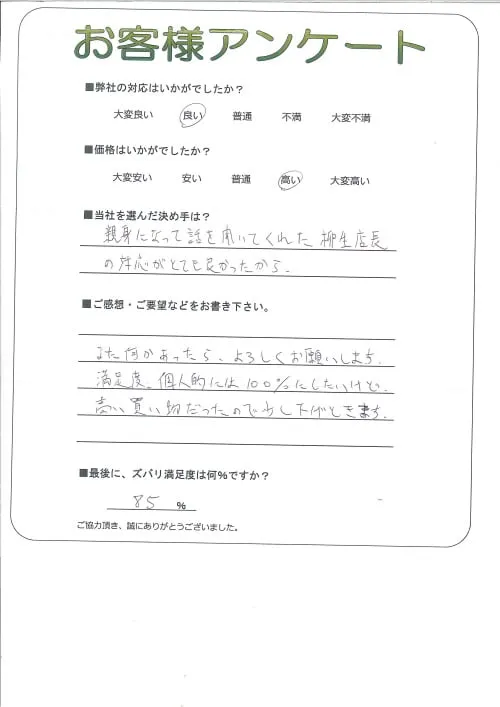 お客様アンケート
■弊社の対応はいかがでしたか?
大変良い 良い 普通 不満 大変不満
■価格はいかがでしたか?
大変安い 安い 普通 高い 大変高い
■当社を選んだ決め手は?
親身になって話を聞いてくれた 柳生店長
の対応がとても良かったから。
■ご感想・ご要望などをお書き下さい。
また何かあったら、よろしくお願いします。
満足度、個人的には100%にしたいけど、
高い買い物だったので少し下げときます。
■最後に、ズバリ満足度は何%ですか?
85 %
ご協力頂き、誠にありがとうございました。